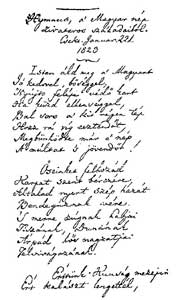 Hymnus, a' Magyar nép
zivataros századaiból.
Cseke, Januar 22d.
1823
Isten áld meg a' Magyart
Jó kedvvel, bőséggel,
Nyújts feléje védő kart
Ha küzd ellenséggel,
Bal sors a' kit régen tép
Hozz rá víg esztendőt,
Megbűnhődte már a' nép
A' múltat 's jövendőt!
Őseinket felhozád
Kárpát szent bérczére,
Általad nyert szép hazát
Bendegúznak vére.
'S merre zúgnak habjai
Tiszának, Dunának
Árpád hős magzatjai
Felvirágozának.
Értünk Kunság mezején
Ért kalászt lengettél,